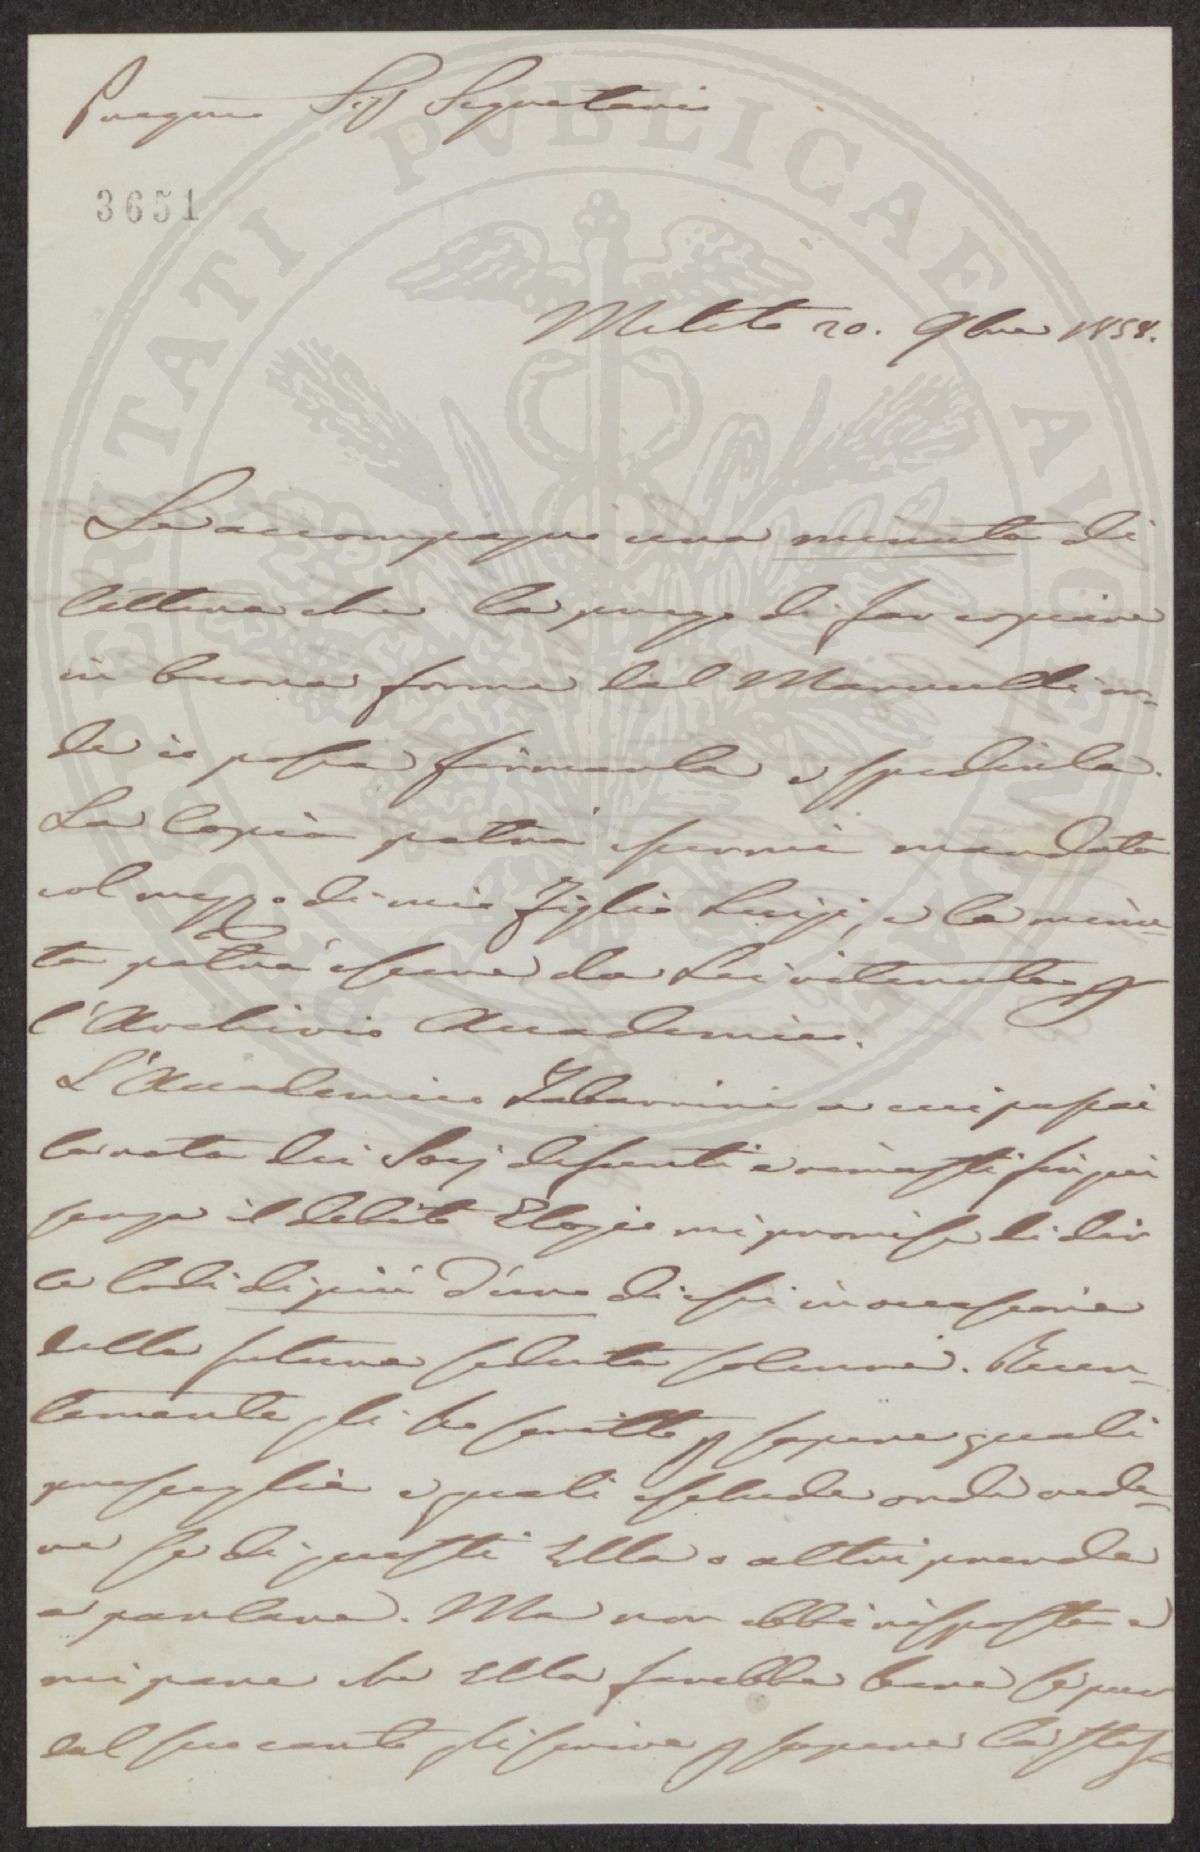 Pregmo Sigr Segretario
3651
Meleto 20. 9bre 1858.
Le accompagno una minuta di
lettera che la prego di far copiare
in buona forma dal Mannucci on-
de io possa firmarla e spedirla.
La Copia potrà essermi mandata
col mezzo di mio Figlio Luigi, e la minu-
ta potrà essere da Lei ritenuta p
l'Archivio Accademico.
L'Accademico Tabarrini a cui passai
la nota dei Socj defunti e rimasti fin qui
senza il debito Elogio mi promise di dir
le lodi di più d'uno di essi in occasione
della futura seduta solenne. Recen-
temente gli ho scritto p sapere quali
presceglie e quali esclude onde vede-
re se di questi Ella o altri prenda
a parlare. Ma non ebbi risposta e
mi pare che Ella farebbe bene se pur
dal suo canto gli scrive p sapere la stes-
PVBLICAE